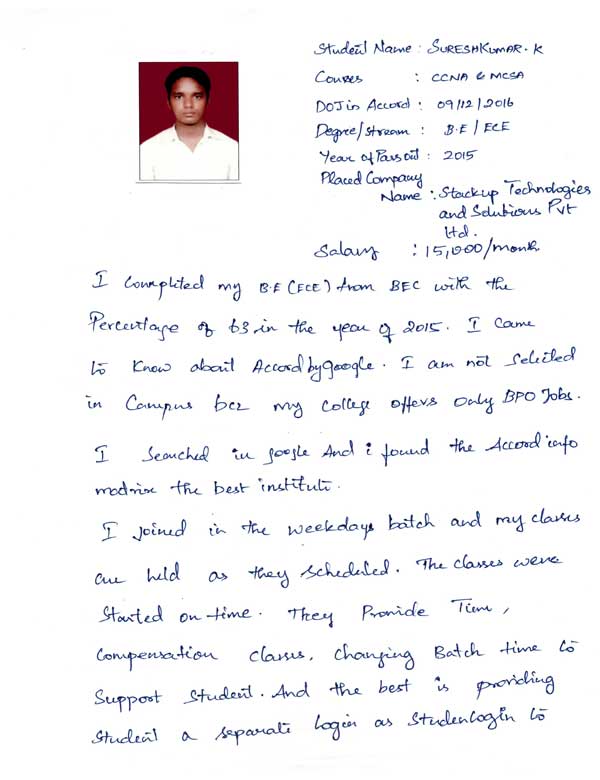 Student Name : SURESHKUMAR. K
Courses : CCNA & MCSA
DOJ in Accord : 09/12/2016
Degree/Stream : B.E / ECE
Year of Passout : 2015
Placed Company
Name : Stackup Technologies
and Solutions Pvt
Ltd.
Salary : 15,000/month
I completed my B.E (ECE) from BEC with the
Percentage of 63 in the year of 2015. I came
to know about Accord by google. I am not Selected
in Campus bcz my College offers Only BPO Jobs.
I Searched in google And i found the Accord info
matrix the best institute.
I joined in the weekdays batch and my classes
are held as they Scheduled. The classes were
Started on-time. They Provide Time,
Compensation Classes, Changing Batch time to
Support Student. And the best is providing
Student a separate Login as Studenlogin to